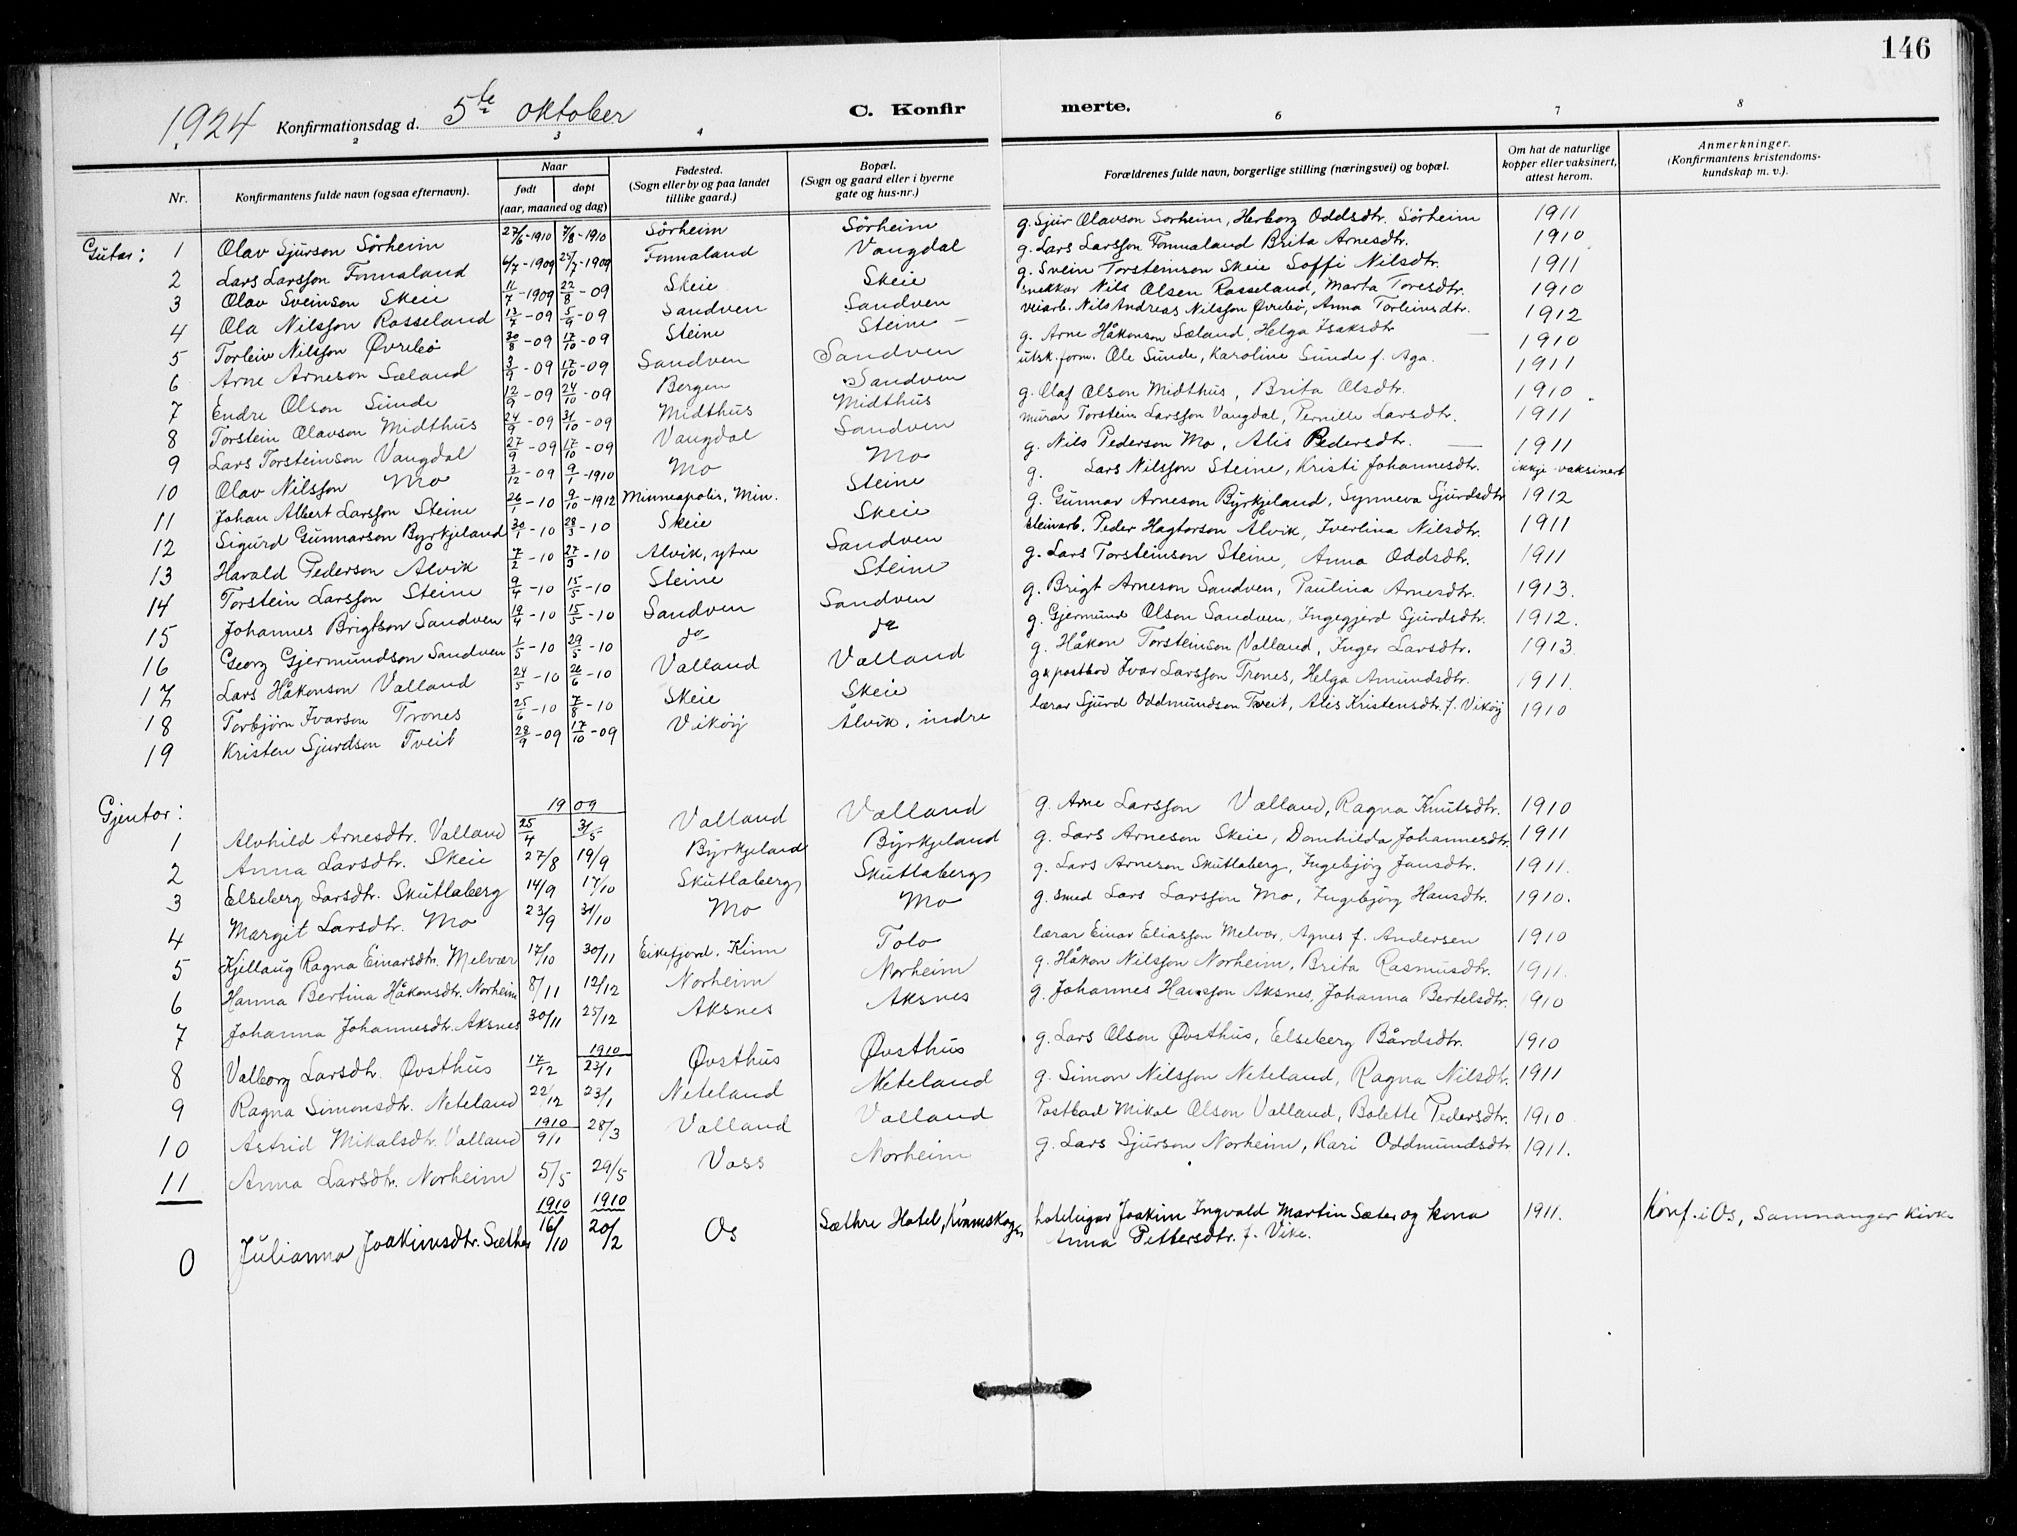 146
1924 Konfirmationsdag d. 5te oktober C. Konfirmerte.
2 3 4 6 7 8
Nr. Konfirmantens fulde navn (ogsaa efternavn). Naar født døpt (aar, maaned og dag) Fødested. (Sogn eller by og paa landet tillike gaard.) Bopæl. (Sogn og gaard eller i byerne gate og hus-nr.) Forældrenes fulde navn, borgerlige stilling (næringsvei) og bopæl. Om hat de naturlige kopper eller vaksinert, attest herom. Anmerkninger. (Konfirmantens kristendoms-kundskap m. v.).
Gutar: 1 Olav Sjurson Sörheim 27/6-1910 7/8-1910 Sörheim Sörheim g. Sjur Olavson Sörheim, Herborg Oddsdtr. Sörheim 1911
2 Lars Larsson Fonnaland 6/7-1909 25/7-1909 Fonnaland Vangdal g. Lars Larsson Fonnaland Brita Arnesdtr. 1910
3 Olav Sveinson Skeie 11/7-1909 22/8-09 Skeie Skeie g. Svein Torsteinson Skeie Soffi Nilsdtr. 1911
4 Ola Nilsson Rosseland 13/7-09 5/9-09 Sandven Sandven snekkar Nils Olsen Rosseland, Marta Toresdtr. 1910
5 Torleiv Nilsson Øvrebø 30/8-09 17/10-09 Steine Steine veiarb. Nils Andreas Nilsson Øvrebø, Anna Torleivsdtr. 1912
6 Arne Arneson Sæland 3/9-09 17/10-09 Sandven Sandven g. Arne Håkonson Sæland, Helga Isaksdtr 1910
7 Endre Olson Sunde 12/9-09 24/10-09 Bergen Sandven utsk. form. Ole Sunde, Karoline Sunde f. Aga. 1911
8 Torstein Olavson Midthus 24/9-09 31/10-09 Midthus Midthus g. Olaf Olson Midthus, Brita Olsdtr. 1910
9 Lars Torsteinson Vangdal 27/9-09 17/10-09 Vangdal Sandven murar Torstein Larsson Vangdal, Pernille Larsdtr. 1911
10 Olav Nilsson Mo 3/12-09 9/1-1910 Mo Mo g. Nils Pederson Mo, Alis Pedersdtr. 1911
11 Johan Albert Larsson Steine 26/1-10 9/10-1912 Minneapolis, Min. Steine g. Lars Nilsson Steine, Kristi Johannesdtr. ikkje vaksinert
12 Sigurd Gunnarson Byrkjeland 30/1-10 28/3-10 Skeie Skeie g. Gunnar Arneson Byrkjeland, Synneva Sjurdsdtr 1912
13 Harald Pederson Ålvik 7/2-10 27/3-10 Alvik, ytre Sandven steinarb. Peder Hagtorson Ålvik, Iverlina Nilsdtr. 1911
14 Torstein Larsson Steine 9/4-10 15/5-10 Steine Steine g. Lars Torsteinson Steine, Anna Oddsdtr. 1911
15 Johannes Brigtson Sandven 19/4-10 15/5-10 Sandven Sandven g. Brigt Arneson Sandven, Paulina Arnesdtr. 1913.
16 Georg Gjermundson Sandven 1/5-10 29/5-10 do do g. Gjermund Olson Sandven, Ingegjerd Sjurdsdtr. 1912.
17 Lars Håkonson Valland 24/5-10 26/6-10 Valland Valland g. Håkon Torsteinson Valland, Inger Larsdtr. 1913
18 Torbjørn Ivarson Trones 25/6-10 7/8-10 Skeie Skeie g & postbod Ivar Larsson Trones, Helga Amundsdtr. 1911.
19 Kristen Sjurdson Tveit 28/9-09 17/10-09 Vikøy Ålvik, indre lærar Sjurd Oddmundson Tveit, Alis Kristensdtr. f. Vikøy 1910
Gjentor: 1909
1 Alvhild Arnesdtr. Valland 25/4 31/5 Valland Valland g. Arne Larsson Valland, Ragna Knutsdtr. 1910
2 Anna Larsdtr. Skeie 27/8 19/9 Byrkjeland Byrkjeland g. Lars Arneson Skeie, Domhilda Johannesdtr. 1911
3 Elseberg Larsdtr. Skutlaberg 14/9 17/10 Skutlaberg Skutlaberg g. Lars Arneson Skutlaberg, Ingebjörg Jansdtr. 1911.
4 Margit Larsdtr. Mo 23/9 31/10 Mo Mo g. smed Lars Larsson Mo, Ingebjörg Hansdtr. 1910.
5 Kjellaug Ragna Einarsdtr. Melvær 17/10 30/11 Eikefjord, Kinn Tolo lærar Einar Eliasson Melvær, Agnes f. Andersen 1910
6 Hanna Bertina Håkonsdtr. Norheim 8/11 12/12 Norheim Norheim g. Håkon Nilsson Norheim, Brita Rasmusdtr. 1911.
7 Johanna Johannesdtr. Aksnes 30/11 25/12 Aksnes Aksnes g. Johannes Hansson Aksnes, Johanna Bertelsdtr. 1910
8 Valborg Larsdtr. Øvsthus 17/12 1910 23/1 Øvsthus Øvsthus g. Lars Olson Øvsthus, Elseberg Bårdsdtr. 1910
9 Ragna Simonsdtr. Neteland 22/12 23/1 Neteland Neteland g. Simon Nilsson Neteland, Ragna Nilsdtr. 1911
10 Astrid Mikalsdtr. Valland 1910 9/1 28/3 Valland Valland Postbod Mikal Olson Valland, Bolette Pedersdtr. 1910
11 Anna Larsdtr. Norheim 5/5 29/5 Voss Norheim g. Lars Sjurson Norheim, Kari Oddmundsdtr 1911.
0 Julianna Joakimsdtr. Sæthre 1910 16/10 1910 20/2 Os Sæthre Hotel, hoteleigar Joakim Ingvald Martin Sæter og kona 1911. Konf. i Os, Samnanger kirke
Anna Pettersdtr. f. Vike.